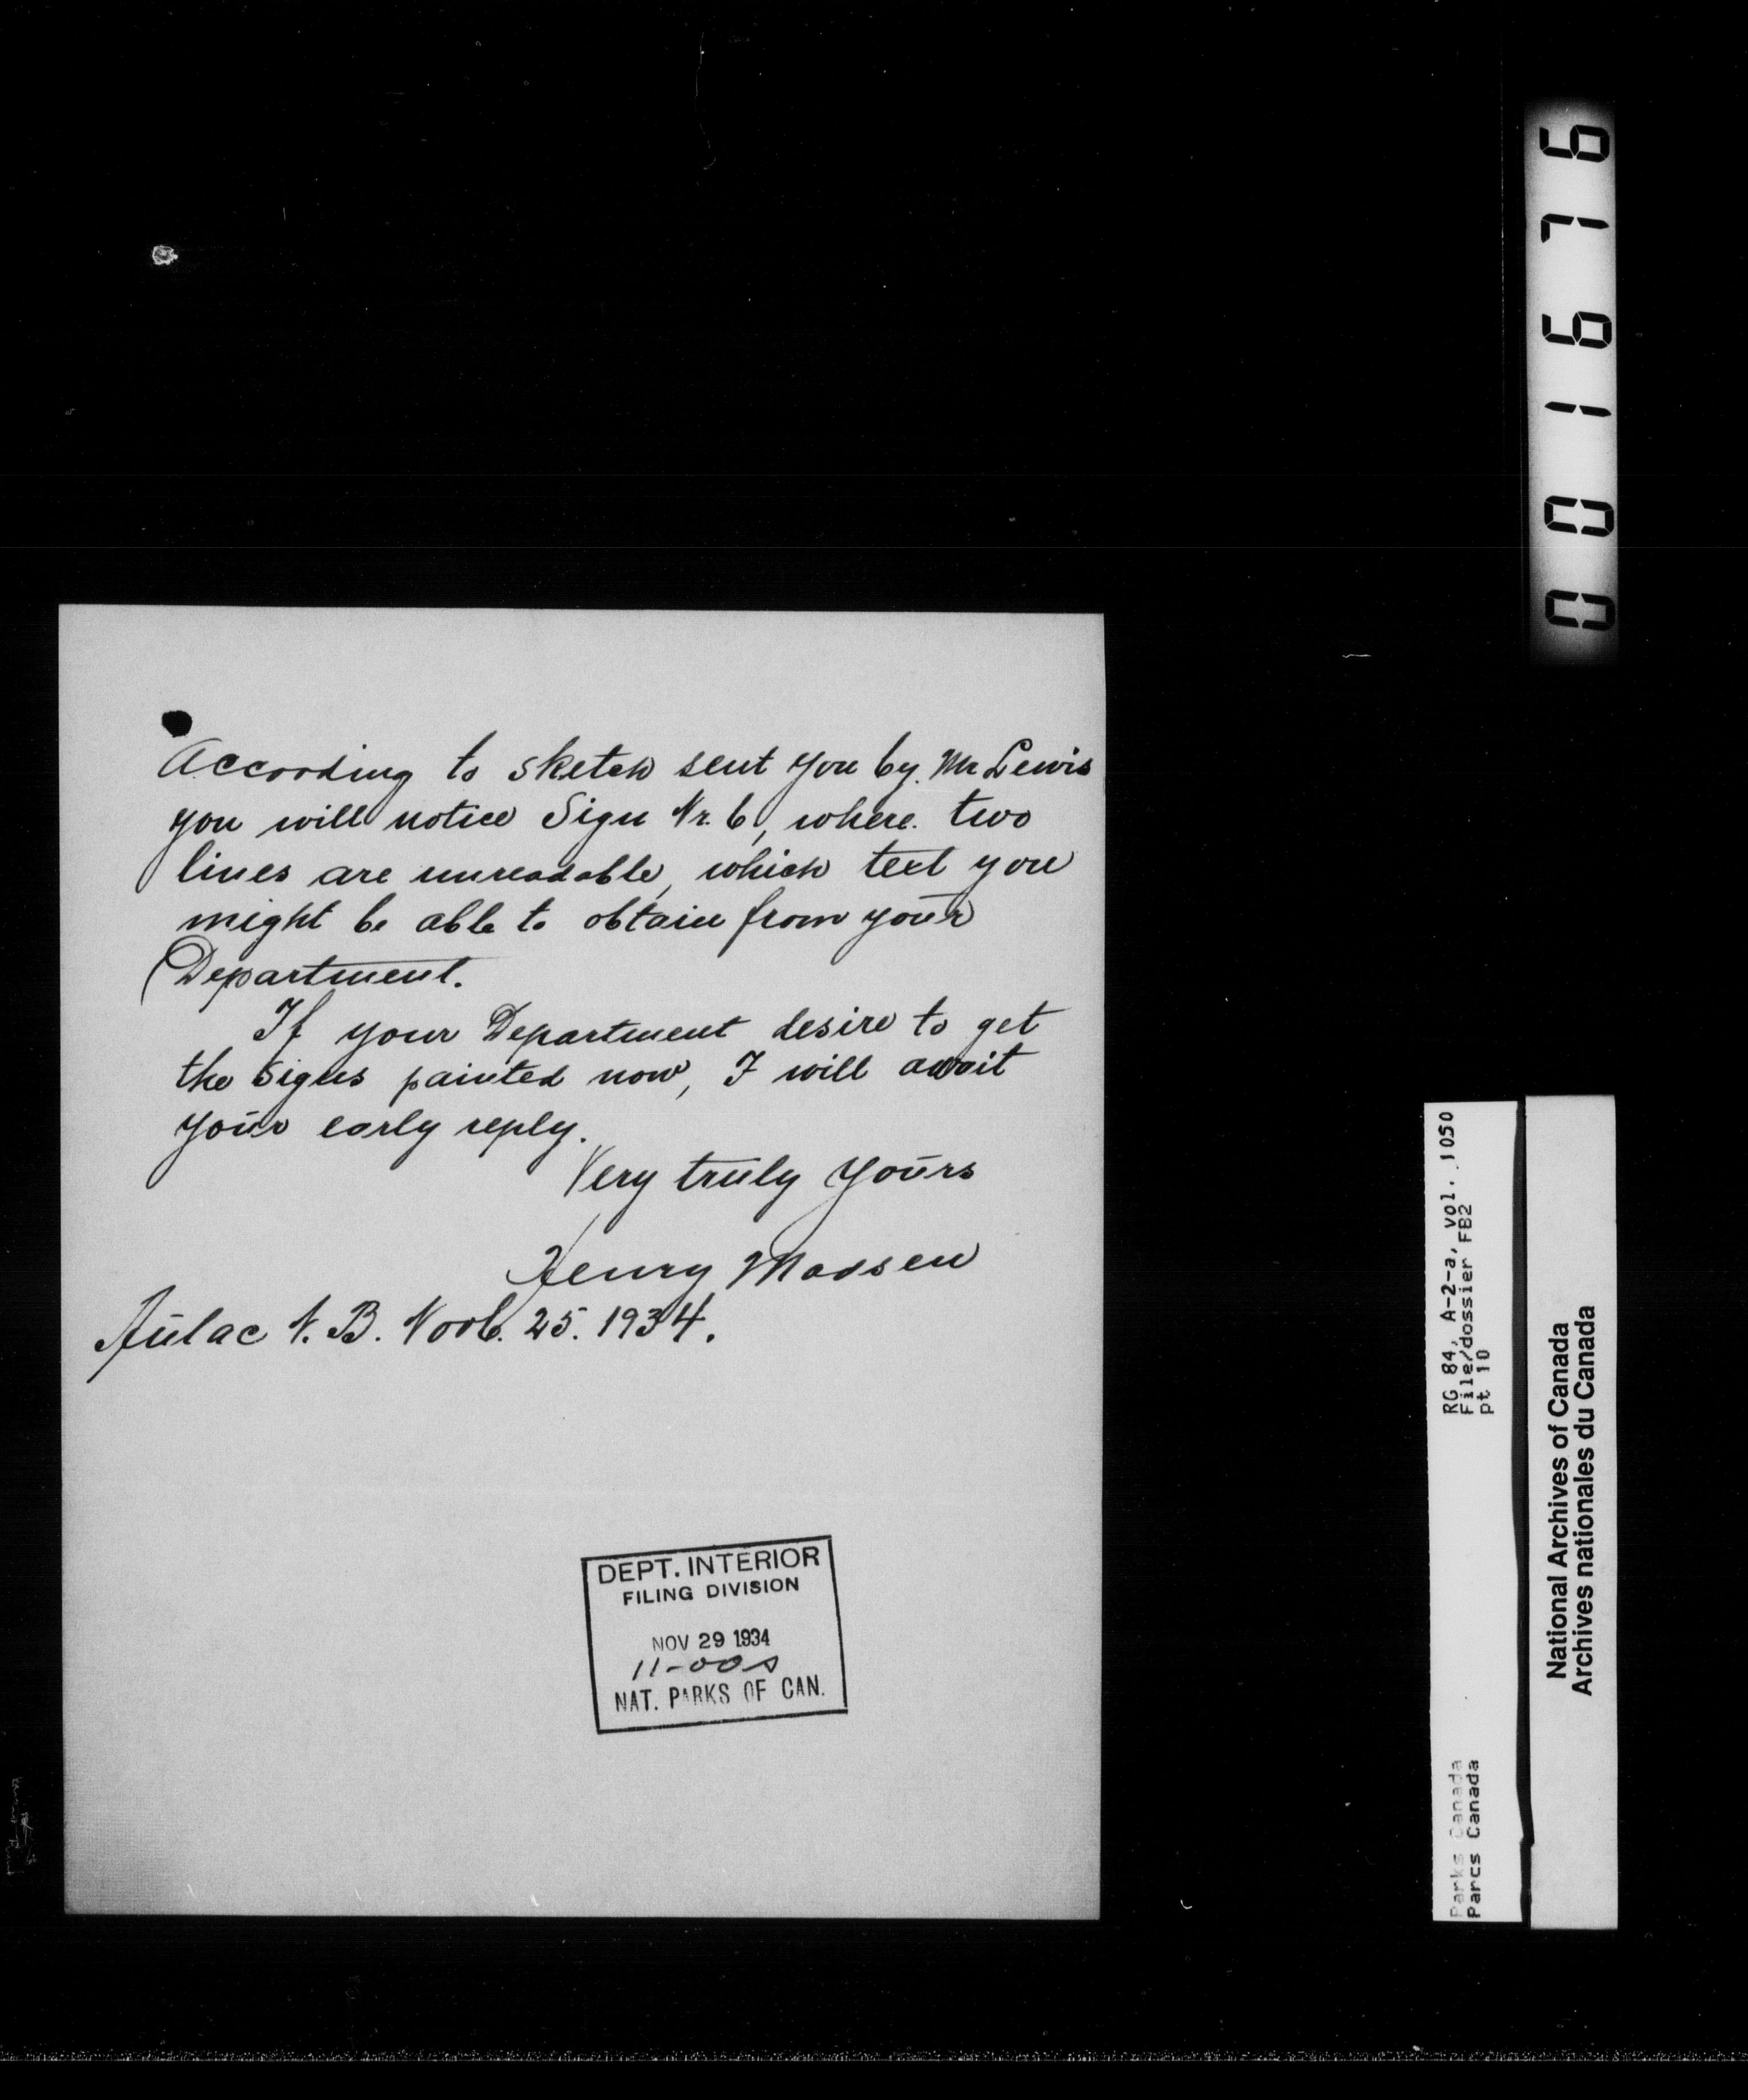 According to sketch sent you by. Mr Lewis
you will notice Sign Nr. 6, where. two
lines are unreadable, which text you
might be able to obtain from your
Department.
If your Department desire to get
the Signs painted now, I will await
your early reply.
Very truly yours
Henry Madsen
Aulac N.B. Novb. 25. 1934.
DEPT. INTERIOR
FILING DIVISION
NOV 29 1934
NAT. PARKS OF CAN.
001676
RG 84, A-2-a, vol. 1050
File/dossier FB2
pt 10
Parks Canada
Parcs Canada
National Archives of Canada
Archives nationales du Canada